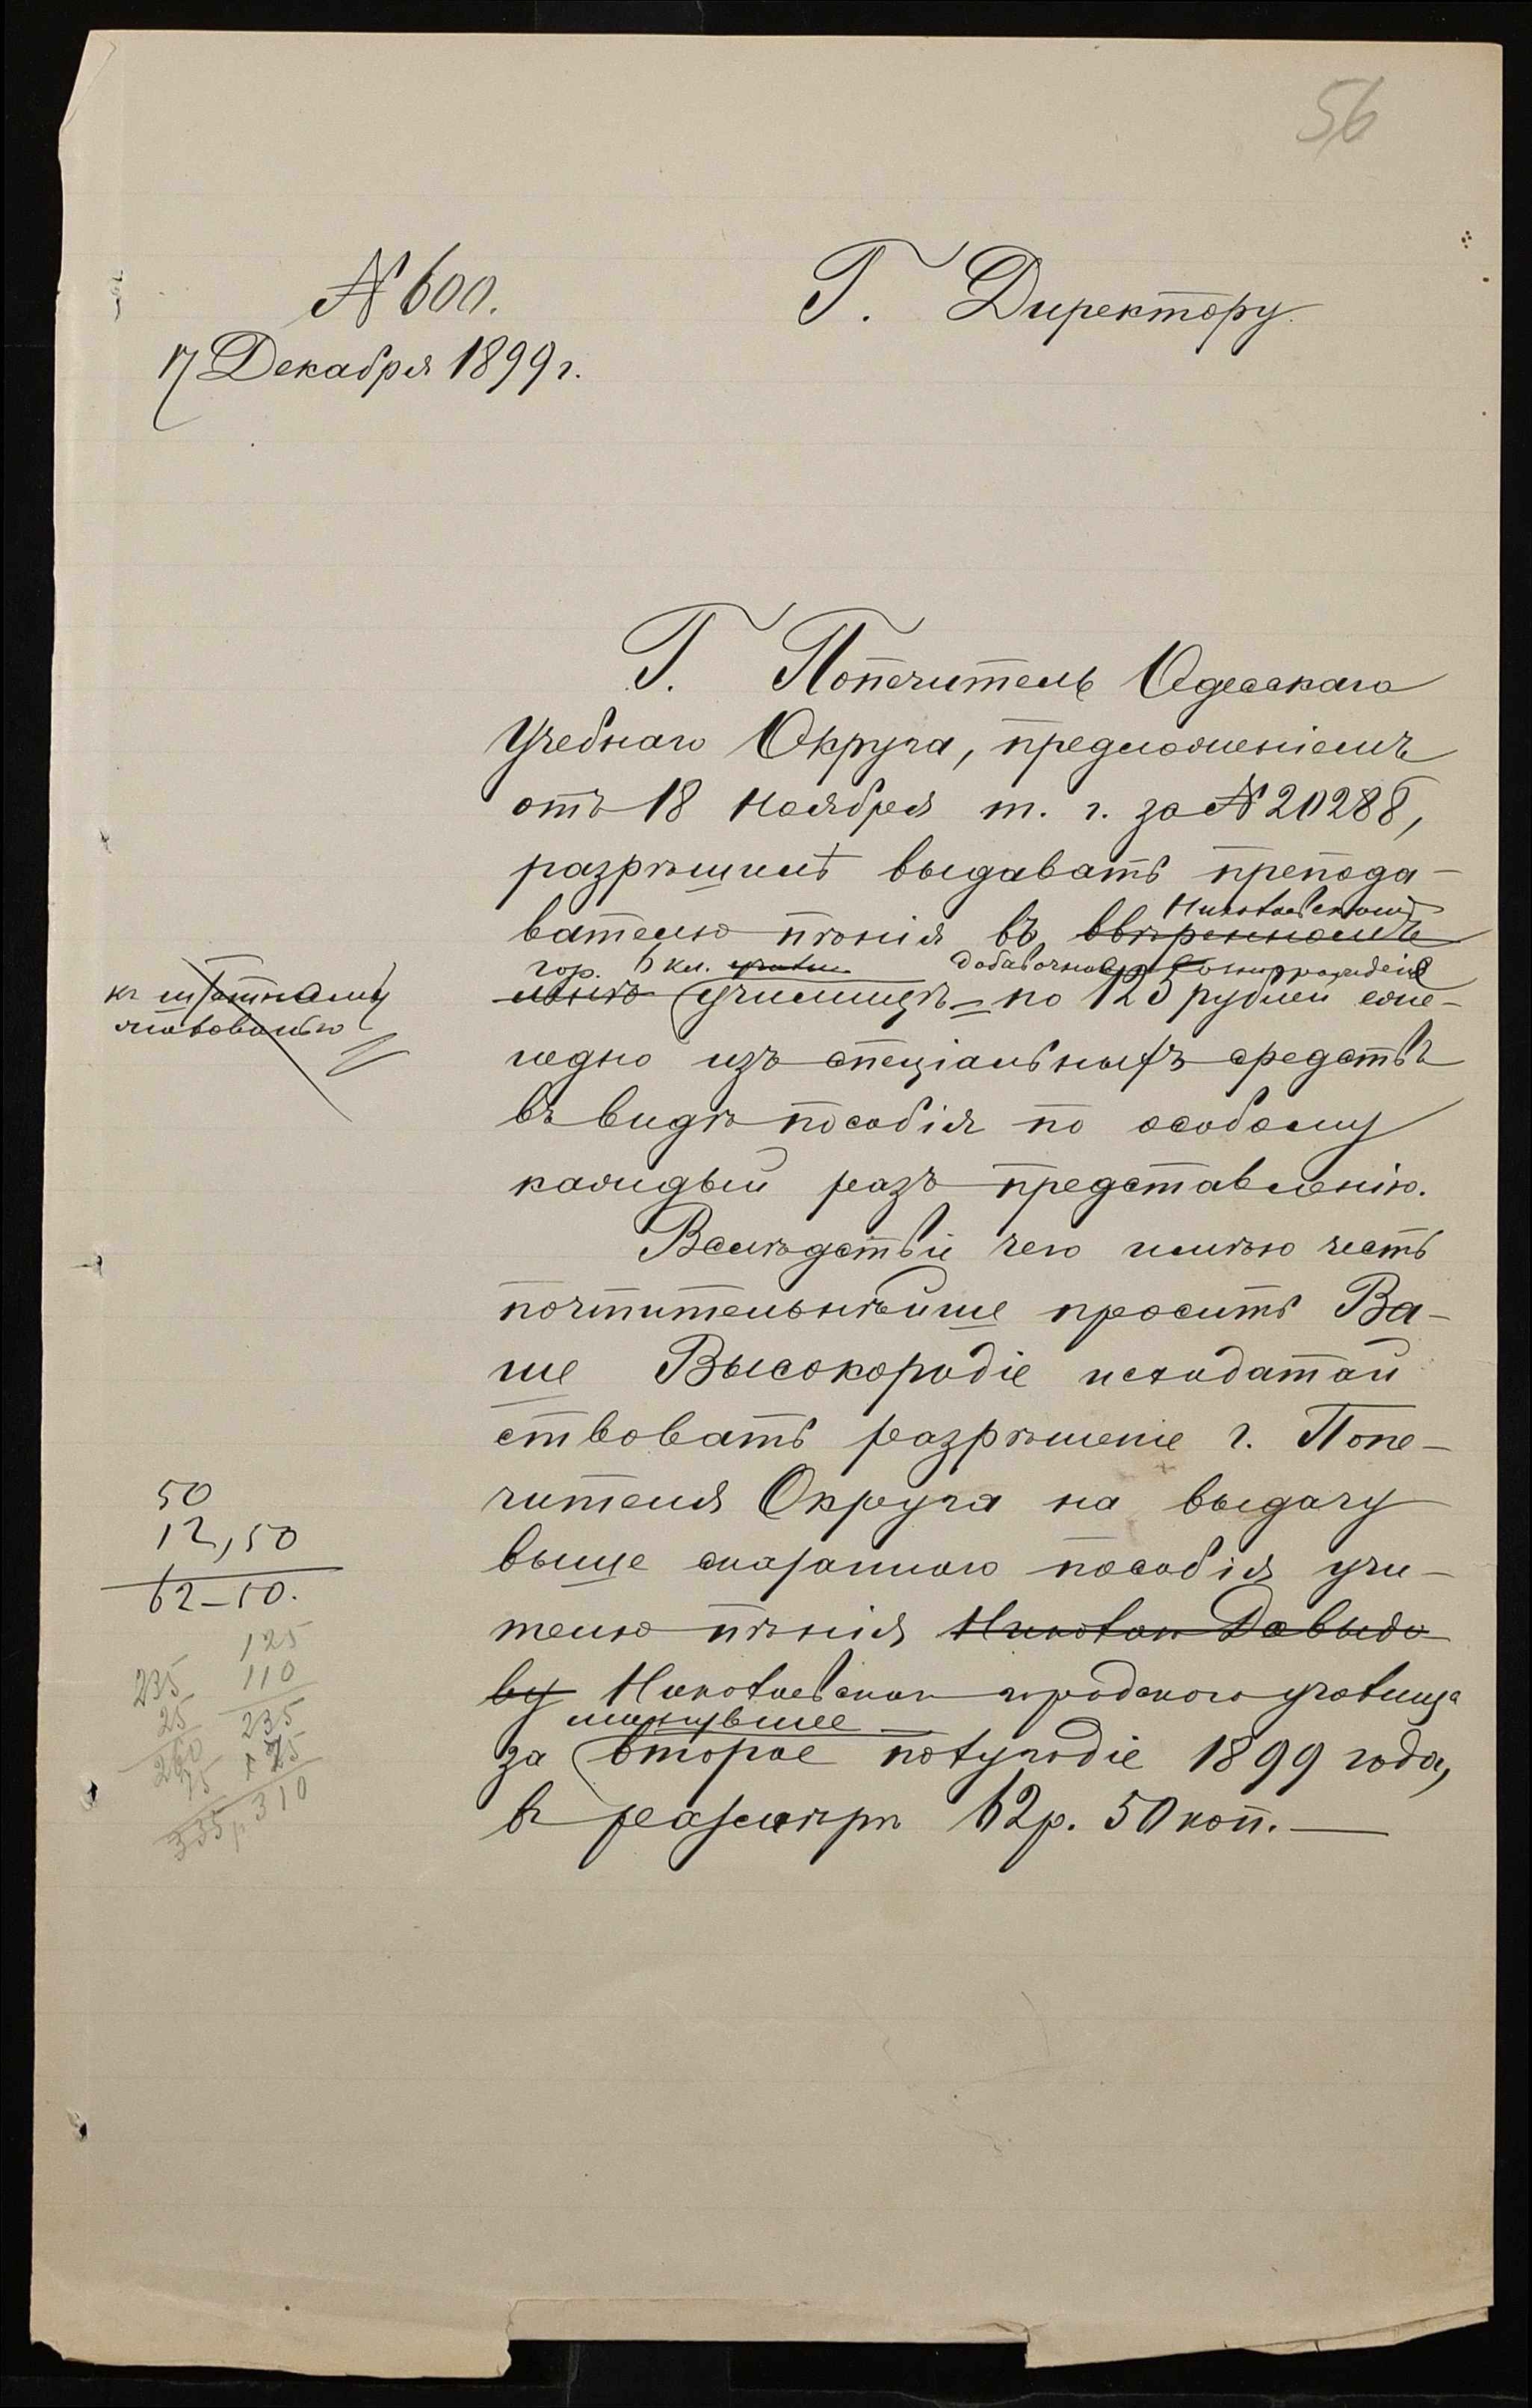 56
N 600.
17 Декабря 1899 г.
Г. Директору
Г. Попечитель Одесскаго
Учебнаго Округа, предложеніемъ
отъ 18 Ноября т. г. за N 20288,
разрѣшилъ выдавать препода-
вателю пѣнія въ ввѣренномъ
Николаевскомъ
гор. 6 кл. училищ добавочнаго вознагражденія
мнѣ училищѣ = по 125 рублей еже-
къ штатному
жалованью
годно изъ спеціальныхъ средствъ
въ видѣ пособія по особому
каждый разъ представленію.
Вслѣдствіе чего имѣю честь
почтительнѣйше просить Ва-
ше Высокородіе исходатай
ствовать разрѣшеніе г. Попе-
чителя Округа на выдачу
выше сказаннаго пособія учи-
телю пѣнія Николаю Давыдо
ву Николаевскаго городского училища
минувшее
за второе полугодіе 1899 года,
въ размѣрѣ 62 р. 50 коп.
50
12,50
62-50.
125
110
235
75
310
235
25
260
75
335 р